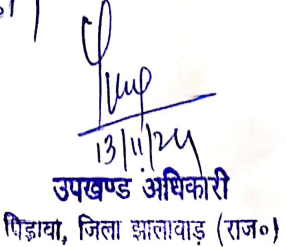 13/11/24
उपखण्ड अधिकारी
पिड़ावा, जिला झालावाड़ (राज०)